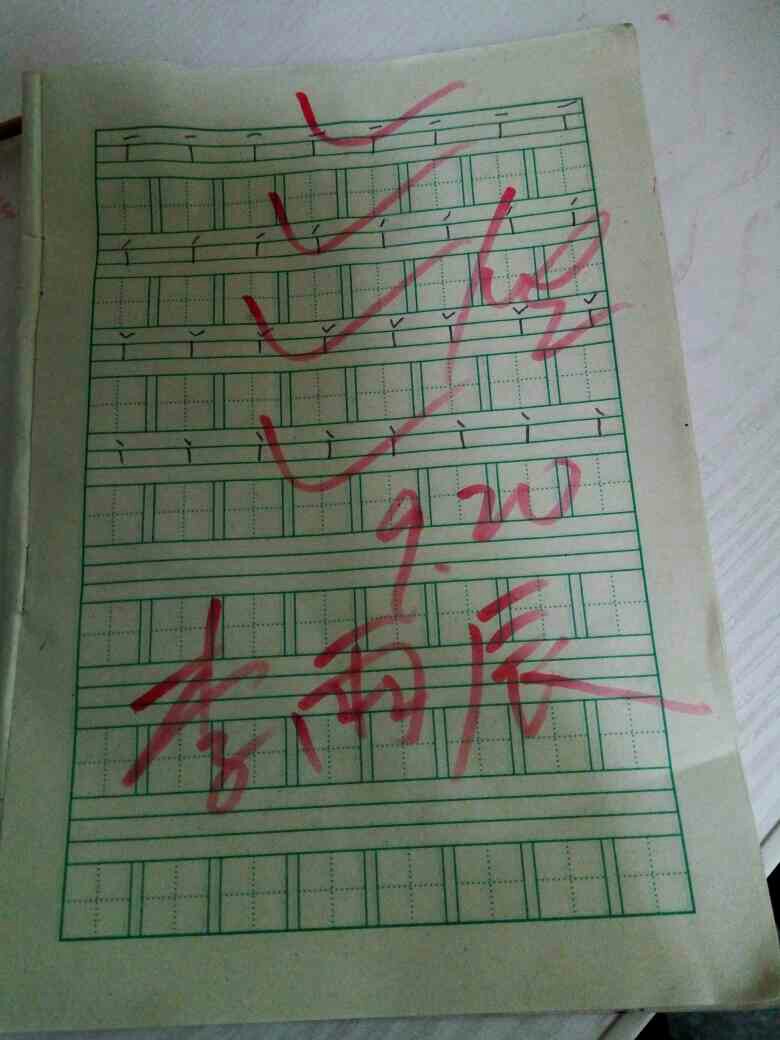 ī ī ī ī ī ī ī ī
í í í í í í í í
ǐ ǐ ǐ ǐ ǐ ǐ ǐ ǐ
ì ì ì ì ì ì ì ì
9.20
李雨辰